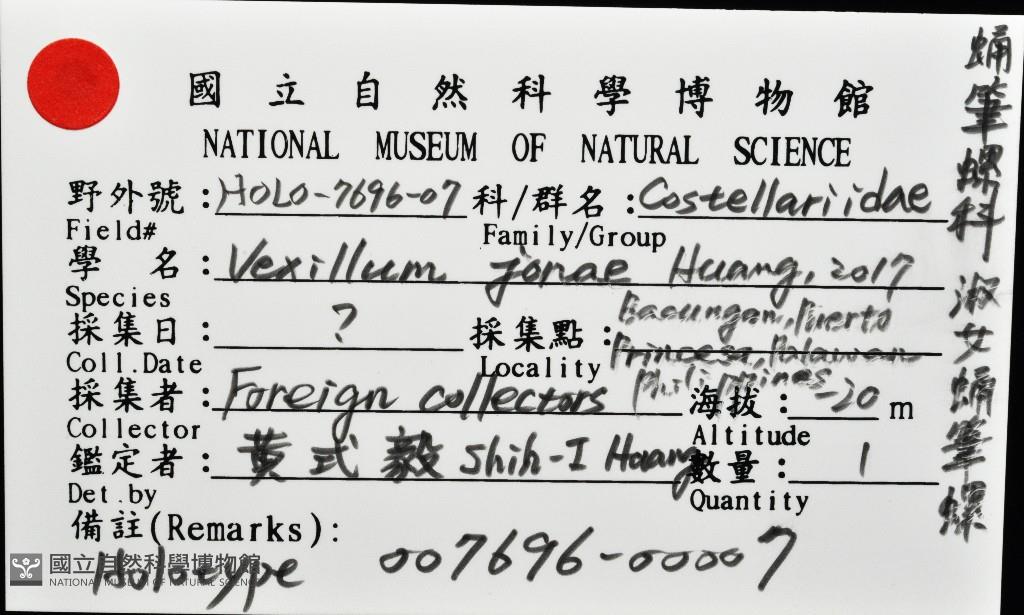 國立自然科學博物館
NATIONAL MUSEUM OF NATURAL SCIENCE
野外號:HOLO-7696-07 科/群名:Costellariidae
Field# Family/Group
學 名:Vexillum jonae Huang, 2017
Species
採集日:? 採集點:Bacungan, Puerto
Princesa, Palawan
Philippines
Coll.Date Locality
採集者:Foreign collectors 海拔:-20 m
Collector Altitude
鑑定者:黃式毅 Shih-I Huang 數量:1
Det.by Quantity
備註(Remarks):
Holotype 007696-00007
國立自然科學博物館
NATIONAL MUSEUM OF NATURAL SCIENCE
蛹筆螺科 淑女蛹筆螺